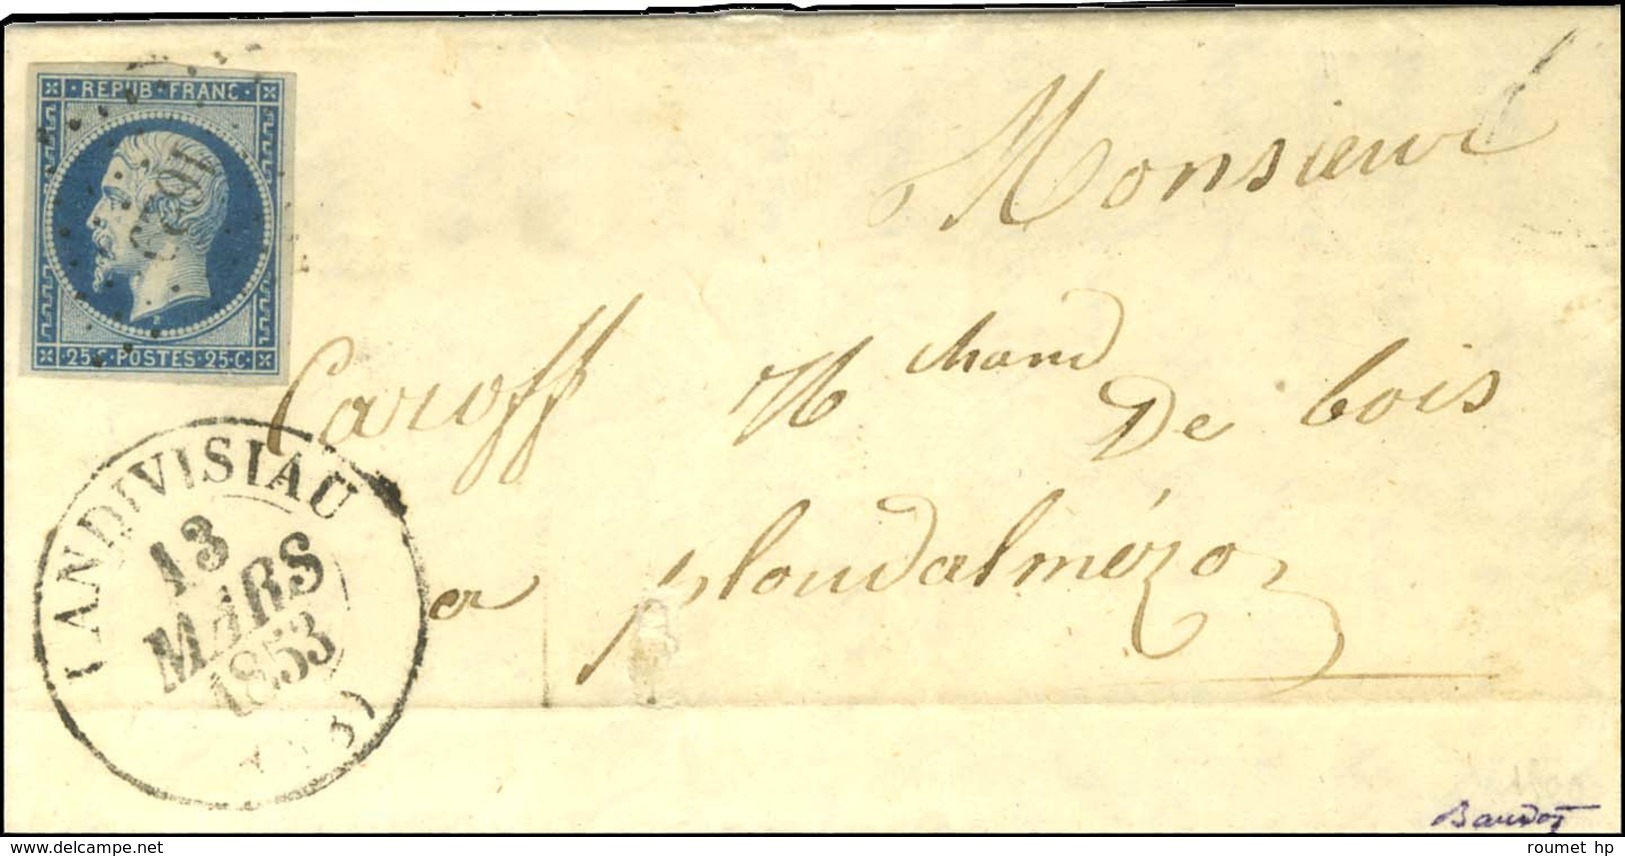 · REPUB · FRANC ·
25·C · POSTES · 25·C
Monsieur
Caroff Mchand De bois
a ploudalmézo
LANDIVISIAU
13
MARS
1853
Baudot
delcampe.net
roumet hp